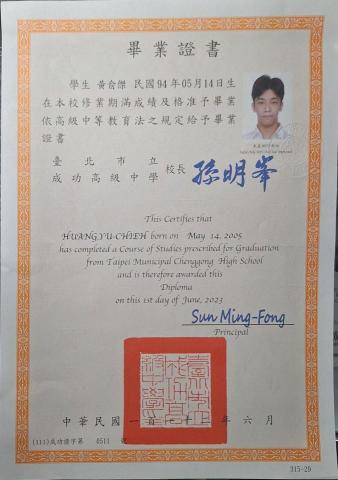 畢業證書
學生 黃俞傑 民國94年05月14日生
在本校修業期滿成績及格准予畢業
依高級中等教育法之規定給予畢業
證書
臺北市立
成功高級中學 校長 孫明峯
This Certifies that
HUANG,YU-CHIEH born on May 14, 2005
has completed a Course of Studies prescribed for Graduation
from Taipei Municipal Chenggong High School
and is therefore awarded this
Diploma
on this 1st day of June, 2023
Sun Ming-Fong
Principal
中華民國一百一十二年六月
(111)成功證字第 0511 號
315-29